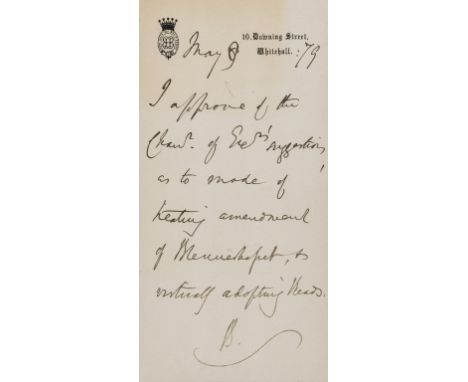 10. Downing Street,
Whitehall.
May 9 :79
I approve of the
Chanr. of Excrs' suggestions,
as to mode of
treating amendment
of Blennerhasset, &
virtually adopting Reads.
B.